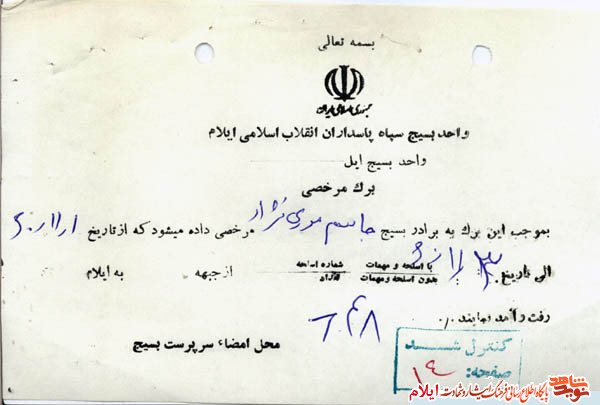 بسمه تعالی
جمهوری اسلامی ایران
واحد بسیج سپاه پاسداران انقلاب اسلامی ایلام
واحد بسیج ایل
برگ مرخصی
بموجب این برگ به برادر بسیج جاسم موسی نژاد مرخصی داده میشود که از تاریخ
الی تاریخ با اسلحه و مهمات شماره اسلحه از جبهه به ایلام
بدون اسلحه و مهمات
رفت و آمد نمایند ٠/
محل امضاء سرپرست بسیج
کنترل شد
صفحه: ۱۹
نوید شاهد
پایگاه اطلاع رسانی فرهنگ ایثار و شهادت ایلام